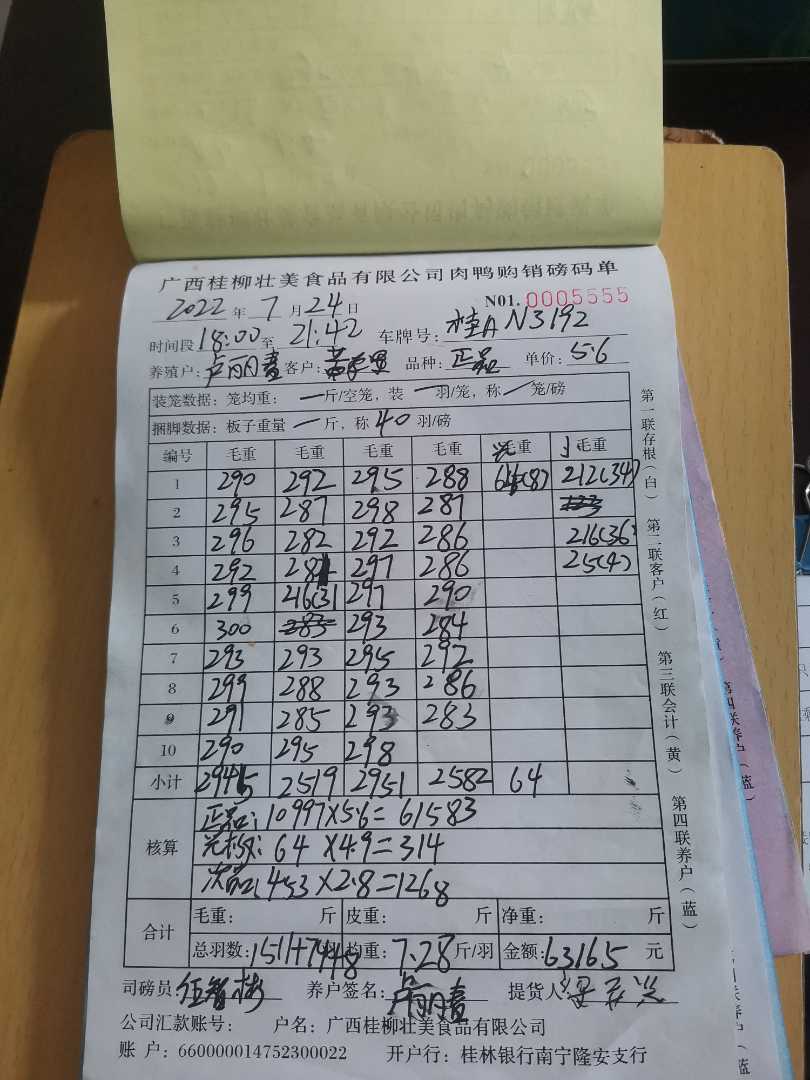 广西桂柳壮美食品有限公司肉鸭购销磅码单
2022年7月24日 N01.0005555
时间段18:00至21:42 车牌号:桂A N3192
养殖户:卢丽春 客户: 品种:正品 单价:5.6
装笼数据:笼均重:一斤/空笼,装一羽/笼,称一笼/磅
捆脚数据:板子重量一斤,称40羽/磅
编号 毛重 毛重 毛重 毛重 毛重 毛重
1 290 292 295 288 64(8) 212(34)
2 295 287 298 287
3 296 282 292 286 216(36)
4 292 297 286 25(4)
5 299 46(3) 297 290
6 300 283 293 284
7 293 293 295 292
8 299 288 293 286
9 291 285 293 283
10 290 295 298
小计 2945 2519 2951 2582 64
核算
正品:10997×5.6=61583
64×4.9=314
次品:453×2.8=1268
合计
毛重: 斤 皮重: 斤 净重: 斤
总羽数:1511+74+8羽 均重:7.28斤/羽 金额:63165元
司磅员:伍智彬 养户签名:卢丽春 提货人:
公司汇款账号: 户名:广西桂柳壮美食品有限公司
账 户:660000014752300022 开户行:桂林银行南宁隆安支行
第一联存根(白) 第二联客户(红) 第三联会计(黄) 第四联养户(蓝)
第四联养户(蓝)